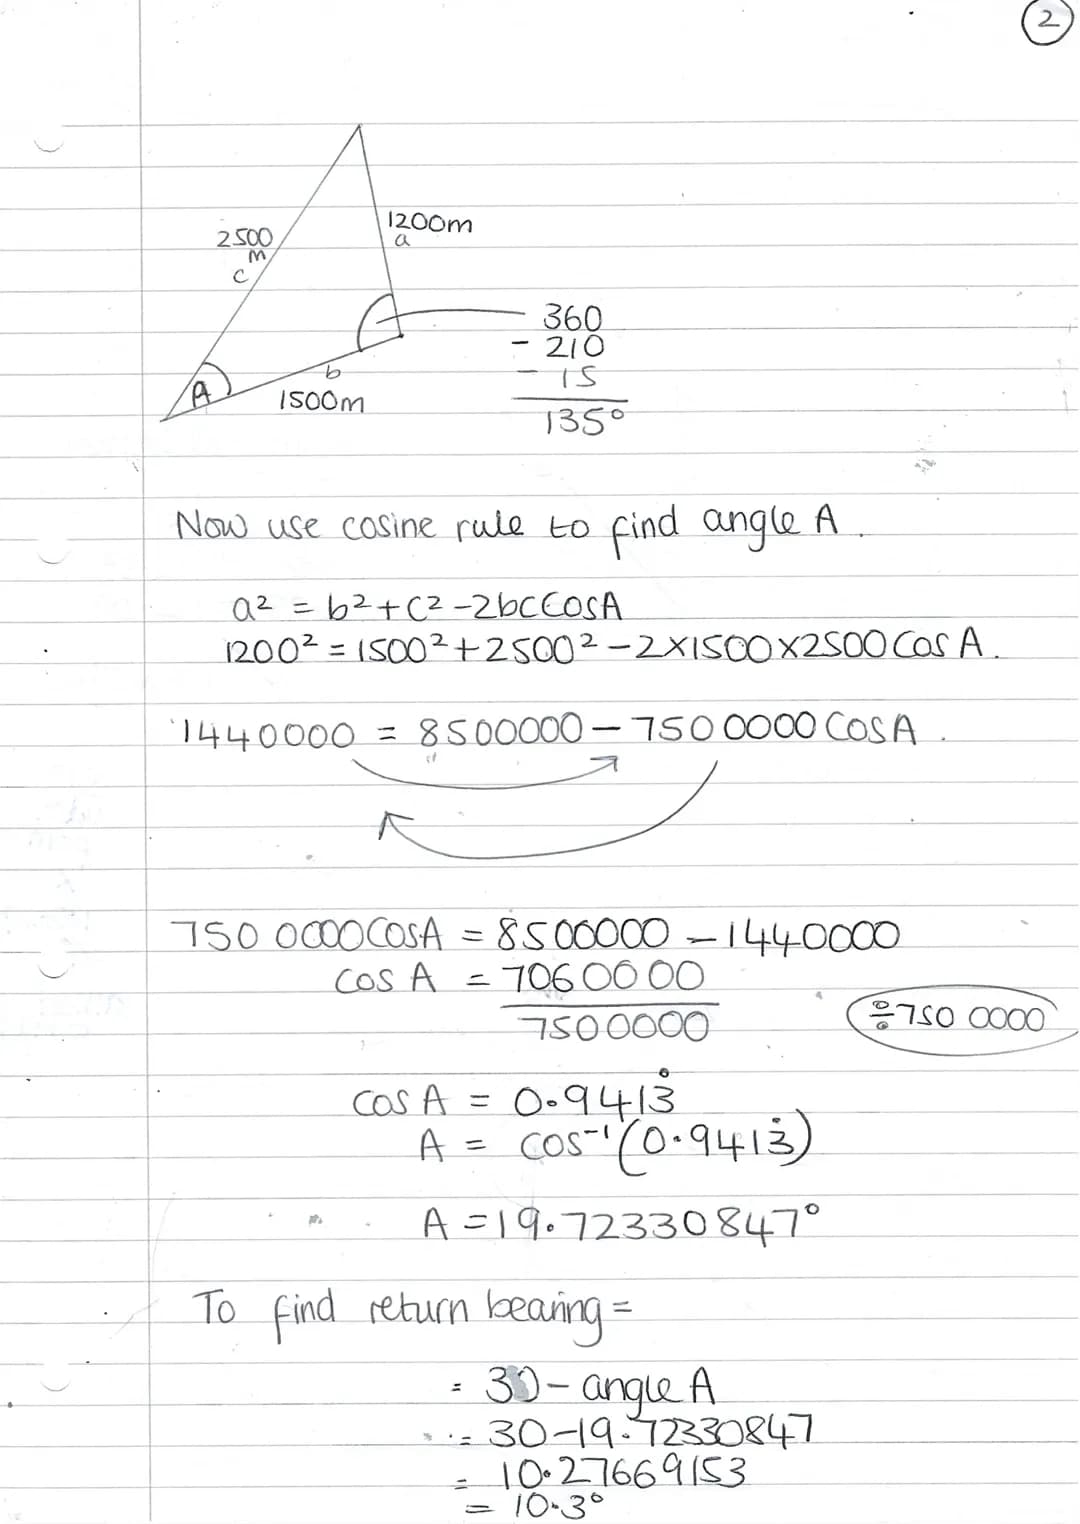 2
1200m
a
2500
m
c
360
- 210
- 15
135°
A
b
1500m
Now use cosine rule to find angle A.
a² = b²+c²-2bcCosA
1200² = 1500²+2500²-2×1500×2500CosA.
1440000 = 8500000-7500000CosA.
7500000CosA = 8500000-1440000
Cos A = 7060000
7500000
÷7500000
Cos A = 0.9413̇
A = Cos⁻¹(0.9413̇)
A = 19.72330847°
To find return bearing =
= 30- angle A
∴ = 30-19.72330847
= 10.27669153
= 10.3°